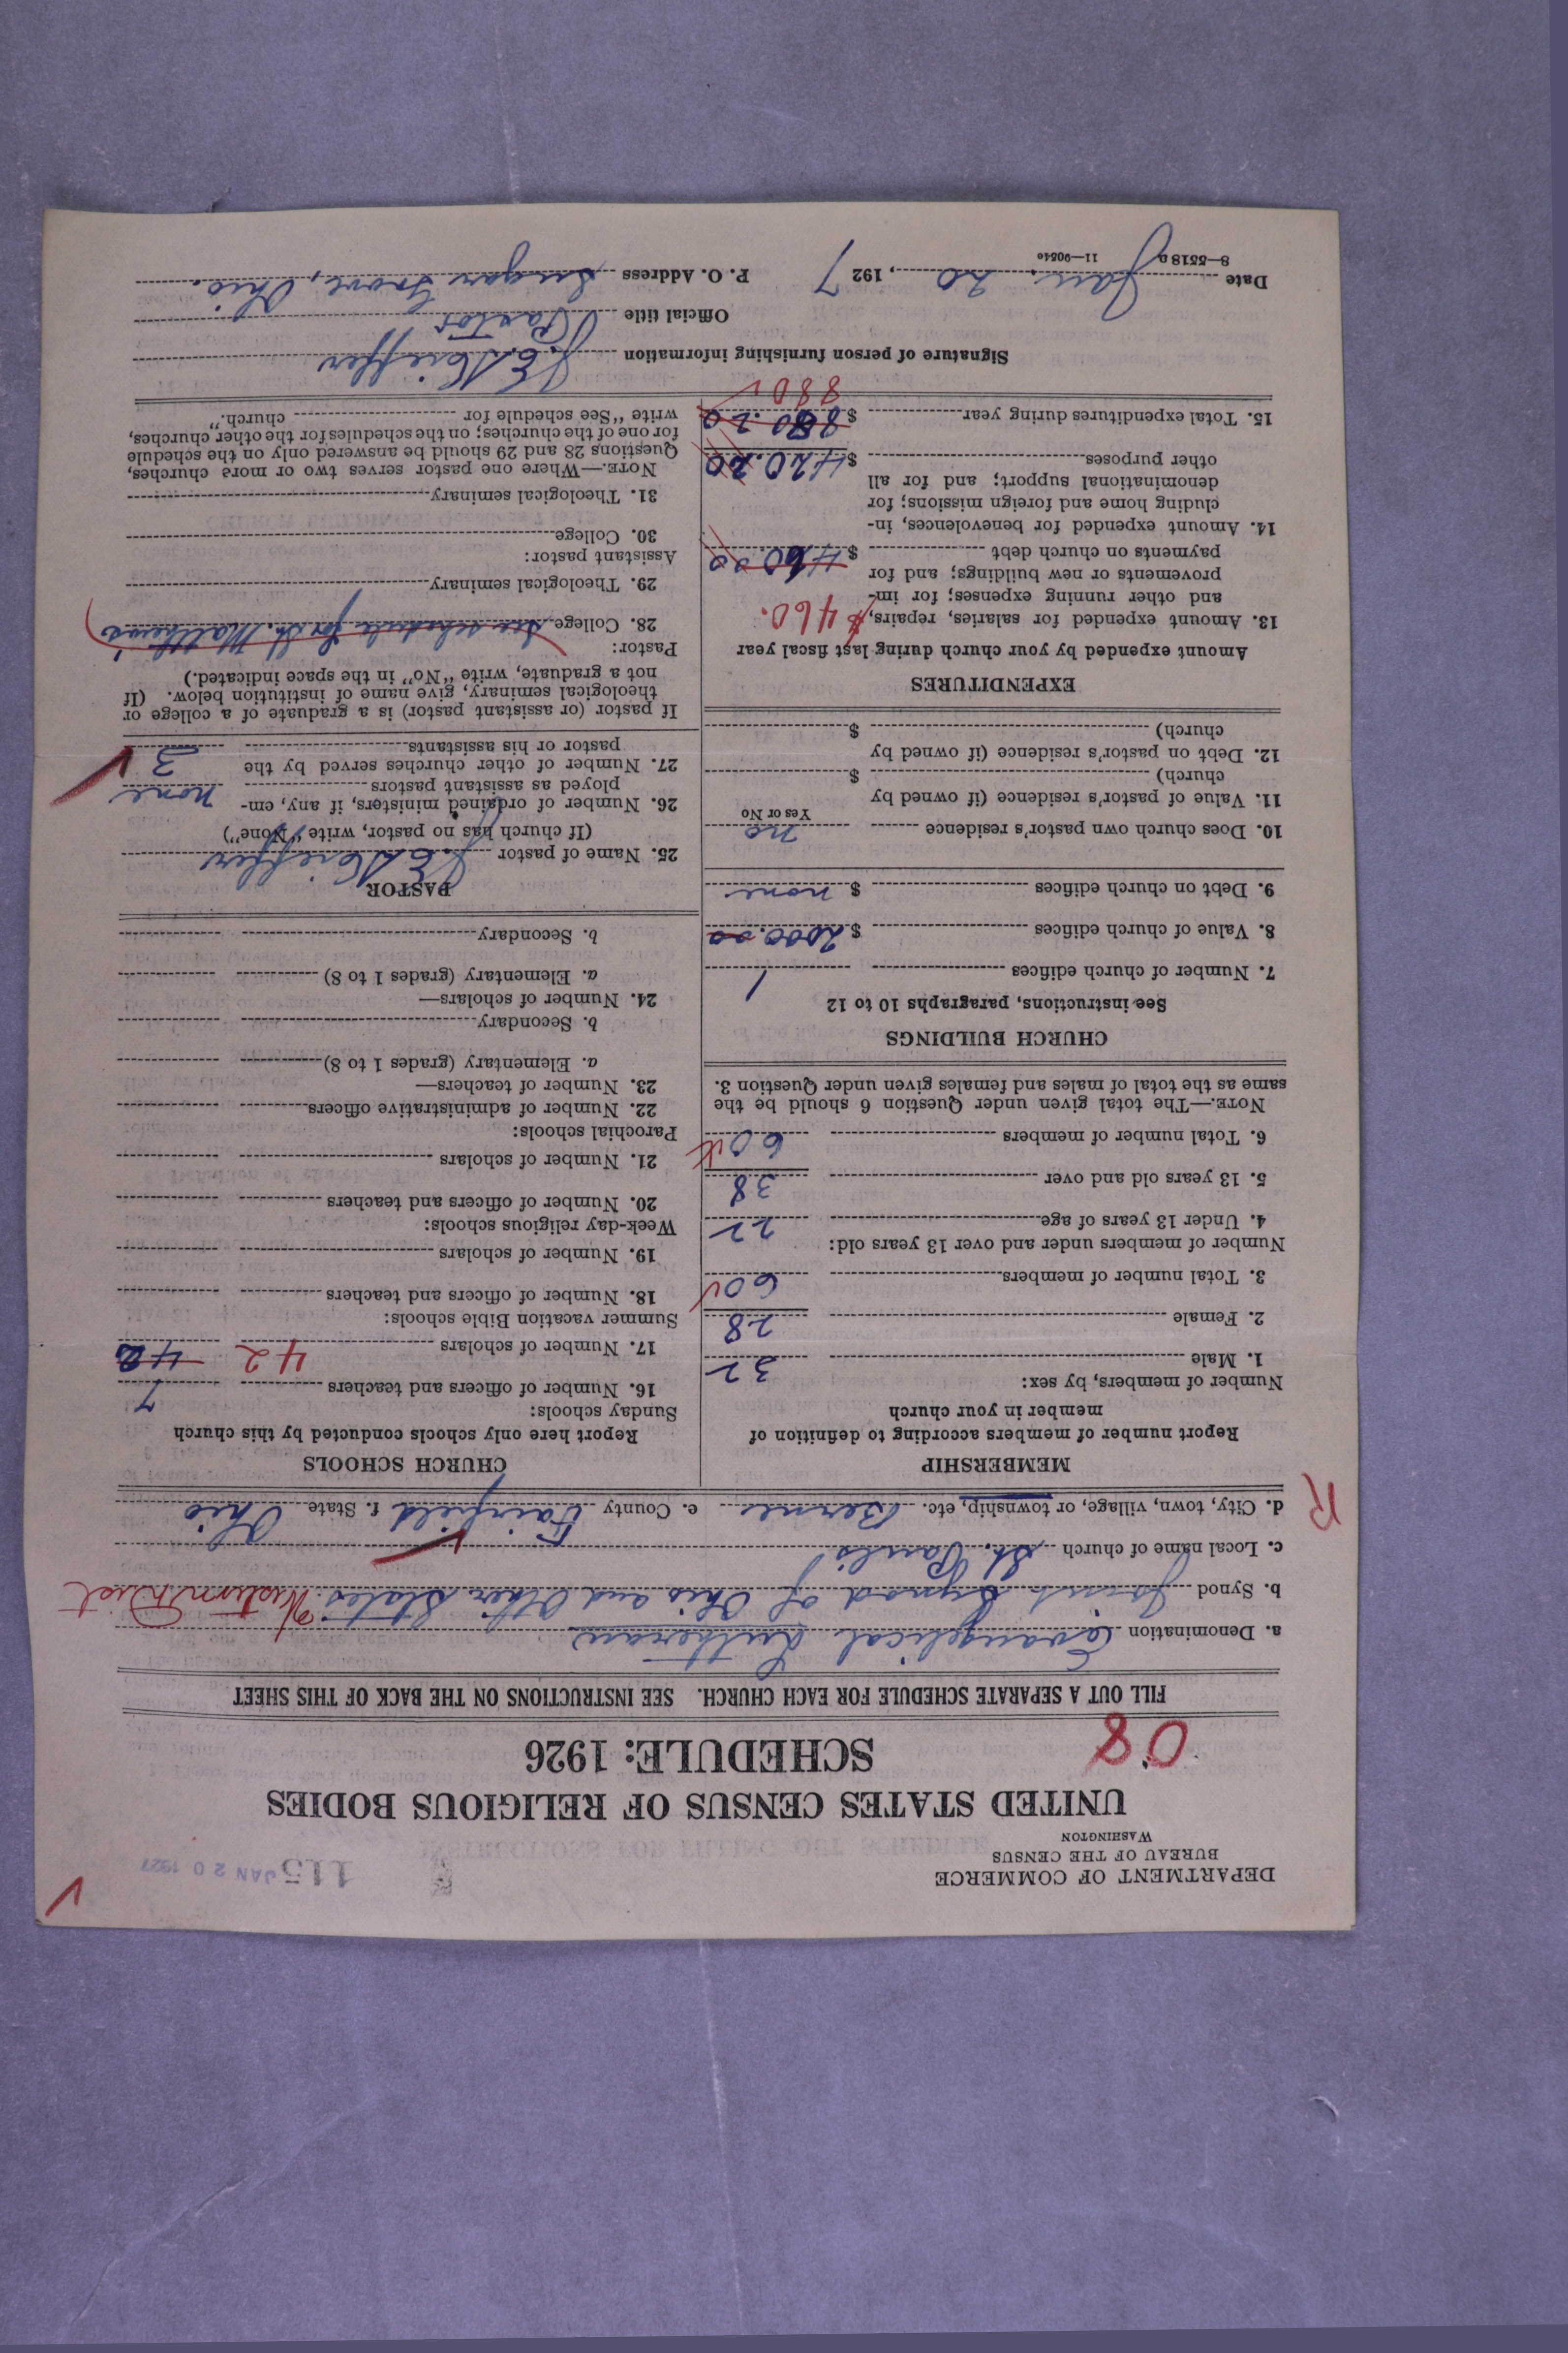 DEPARTMENT OF COMMERCE
BUREAU OF THE CENSUS
WASHINGTON
115 JAN 20 1927
UNITED STATES CENSUS OF RELIGIOUS BODIES
SCHEDULE: 1926
08
FILL OUT A SEPARATE SCHEDULE FOR EACH CHURCH. SEE INSTRUCTIONS ON THE BACK OF THIS SHEET
a. Denomination Evangelical Lutheran
b. Synod Joint Synod of Ohio and Other States Western Dist
c. Local name of church St. Paul's
d. City, town, village, or township, etc. Berne e. County Fairfield f. State Ohio
R
MEMBERSHIP
Report number of members according to definition of
member in your church
Number of members, by sex:
1. Male 32
2. Female 28
3. Total number of members 60
Number of members under and over 13 years old:
4. Under 13 years of age 22
5. 13 years old and over 38
6. Total number of members 60
NOTE.—The total given under Question 6 should be the
same as the total of males and females given under Question 3.
CHURCH BUILDINGS
See instructions, paragraphs 10 to 12
7. Number of church edifices 1
8. Value of church edifices $ 2000.00
9. Debt on church edifices $ none
10. Does church own pastor's residence no
Yes or No
11. Value of pastor's residence (if owned by
church) $
12. Debt on pastor's residence (if owned by
church) $
EXPENDITURES
Amount expended by your church during last fiscal year
13. Amount expended for salaries, repairs, $460.
and other running expenses; for im-
provements or new buildings; and for
payments on church debt $ 460.00
14. Amount expended for benevolences, in-
cluding home and foreign missions; for
denominational support; and for all
other purposes $ 420.20
15. Total expenditures during year $ 880.20
880
CHURCH SCHOOLS
Report here only schools conducted by this church
Sunday schools:
16. Number of officers and teachers 7
17. Number of scholars 42
Summer vacation Bible schools:
18. Number of officers and teachers
19. Number of scholars
Week-day religious schools:
20. Number of officers and teachers
21. Number of scholars
Parochial schools:
22. Number of administrative officers
23. Number of teachers—
a. Elementary (grades 1 to 8)
b. Secondary
24. Number of scholars—
a. Elementary (grades 1 to 8)
b. Secondary
PASTOR
25. Name of pastor J. E.
(If church has no pastor, write "None")
26. Number of ordained ministers, if any, em-
ployed as assistant pastors none
27. Number of other churches served by the
pastor or his assistants 3
If pastor (or assistant pastor) is a graduate of a college or
theological seminary, give name of institution below. (If
not a graduate, write "No" in the space indicated.)
Pastor:
28. College See schedule for St. Matthews
29. Theological seminary
Assistant pastor:
30. College
31. Theological seminary
NOTE.—Where one pastor serves two or more churches,
Questions 28 and 29 should be answered only on the schedule
for one of the churches; on the schedules for the other churches,
write "See schedule for church."
Signature of person furnishing information J. E.
Official title Pastor
Date Jan. 20, 1927 P. O. Address Sugar Grove, Ohio.
8—5518a 11—9054c